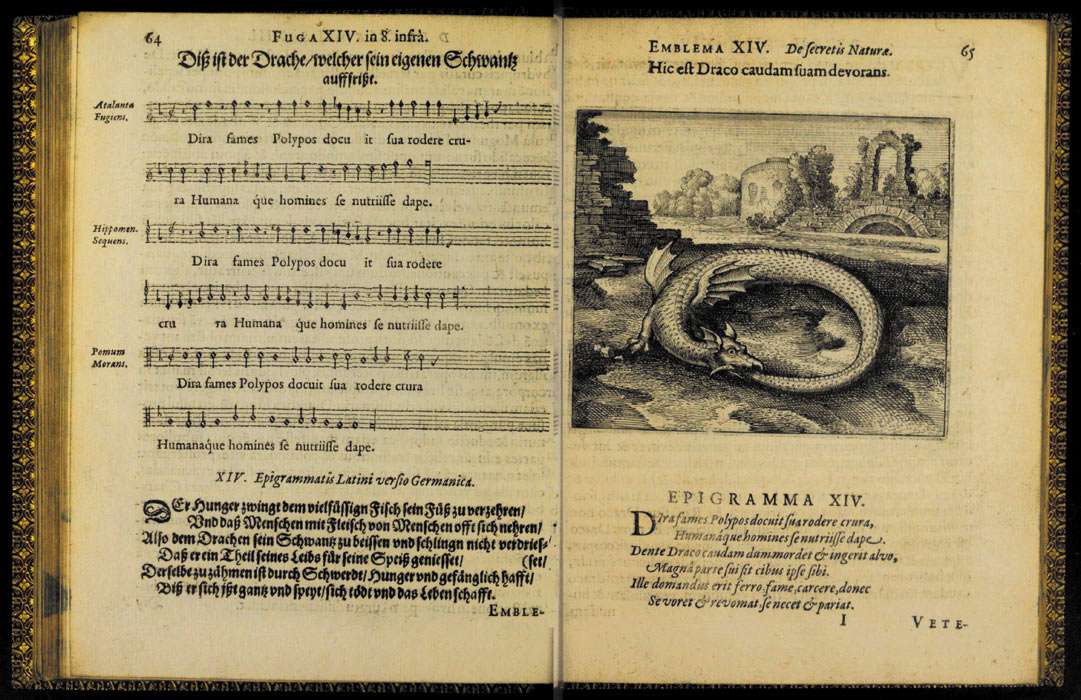 64
FUGA XIV. in 8. infrà.
Diß ist der Drache/welcher sein eigenen Schwantz
auffrißt.
Atalanta
Fugiens.
Dira fames Polypos docu it sua rodere cru-
ra Humana q́ue homines se nutriisse dape.
Hippomen.
Sequens.
Dira fames Polypos docu it sua rodere
cru ra Humana q́ue homines se nutriisse dape.
Pomum
Morans.
Dira fames Polypos docuit sua rodere crura
Humanaque homines se nutriisse dape.
XIV. Epigrammatis Latini versio Germanica.
DEr Hunger zwingt dem vielfüssign Fisch sein Füß zu verzehren/
Vnd daß Menschen mit Fleisch von Menschen offt sich nehren/
Also dem Drachen sein Schwantz zu beissen vnd schlingn nicht verdries-
Daß er ein Theil seines Leibs für seine Speiß geniesset/ (set/
Derselbe zu zähmen ist durch Schwerdt/Hunger vnd gefänglich hafft/
Biß er sich ißt gantz vnd speyt/sich tödt vnd das Leben schafft.
EMBLE-
EMBLEMA XIV. De secretis Naturæ. 65
Hic est Draco caudam suam devorans.
EPIGRAMMA XIV.
DIra fames Polypos docuit sua rodere crura,
Humanáque homines se nutriisse dape.
Dente Draco caudam dum mordet & ingerit alvo,
Magnâ parte sui fit cibus ipse sibi.
Ille domandus erit ferro, fame, carcere, donec
Se voret & revomat, se necet & pariat.
I VETE-